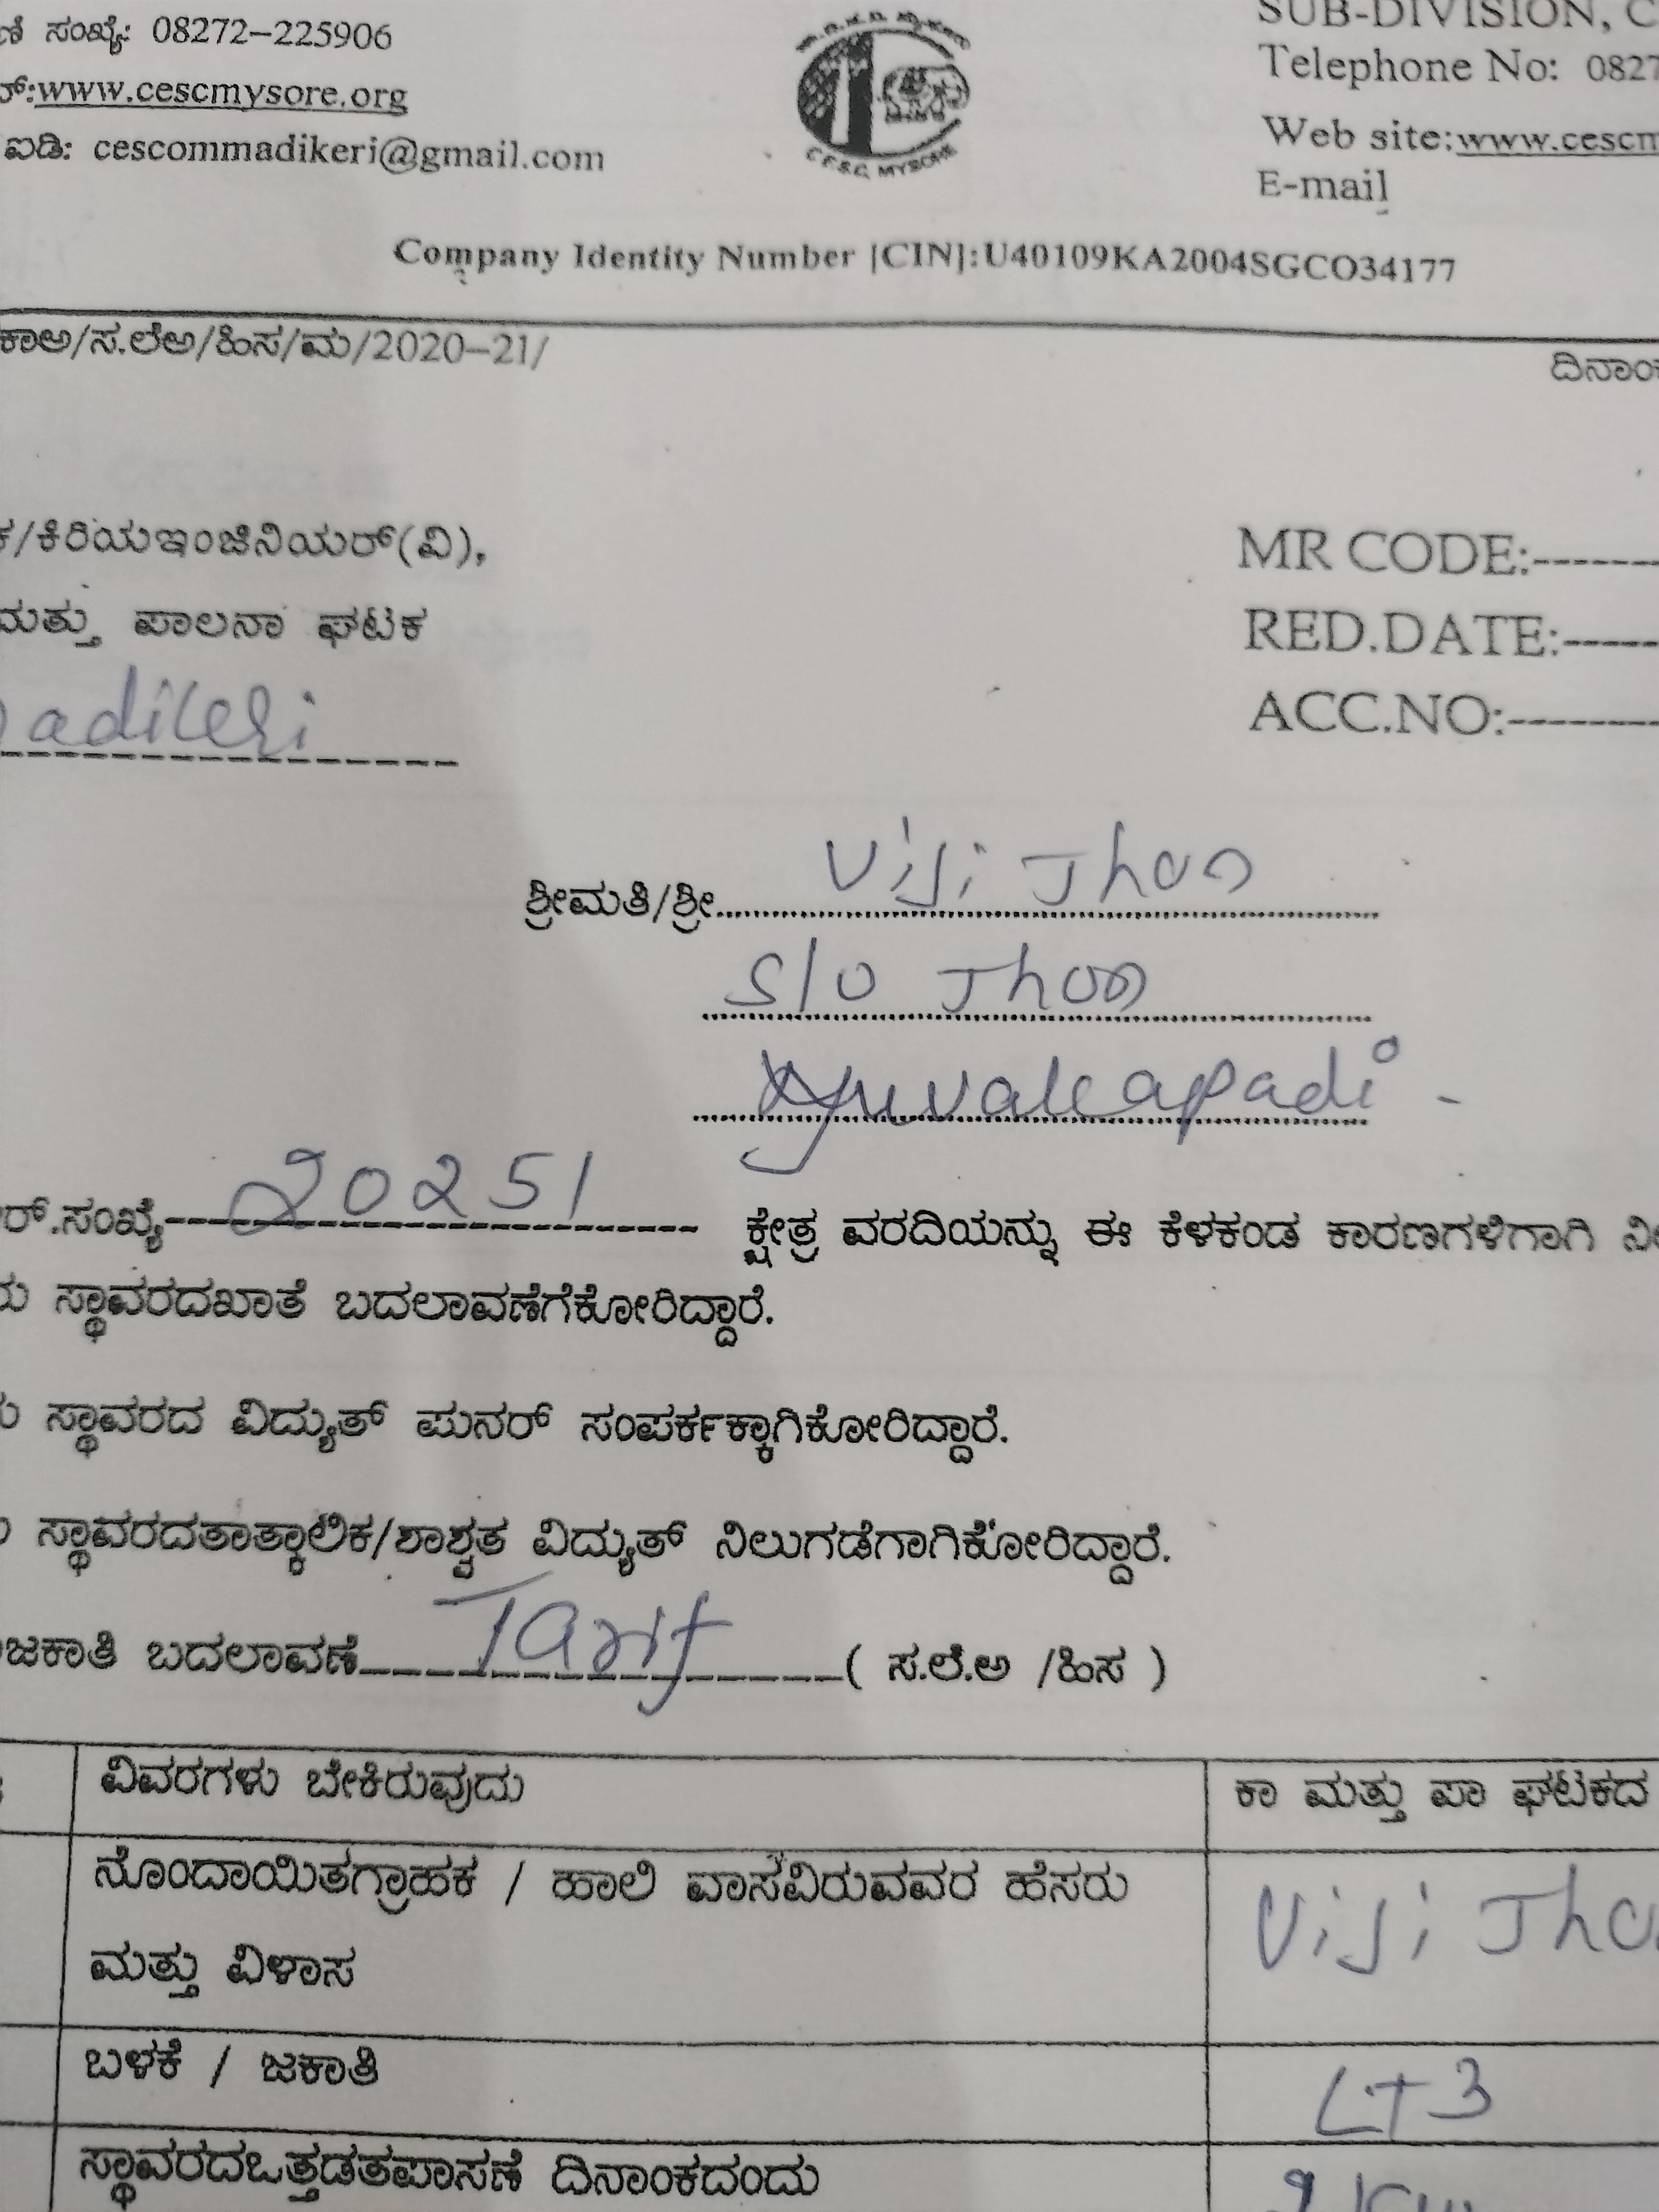 ಸಂಖ್ಯೆ: 08272-225906
SUB-DIVISION, C
Telephone No: 0827
್:www.cescmysore.org
Web site:www.cescm
ಐಡಿ: cescommadikeri@gmail.com
E-mail
C.E.S.C, MYSORE
Company Identity Number [CIN]:U40109KA2004SGCO34177
ಕಾಅ/ಸ.ಲೆಅ/ಹಿಸ/ಮ/2020-21/
ದಿನಾಂಕ
ಕ/ಕಿರಿಯಇಂಜಿನಿಯರ್(ವಿ),
MR CODE:-------
ಮತ್ತು ಪಾಲನಾ ಘಟಕ
RED.DATE:-----
adikeri
ACC.NO:--------
ಶ್ರೀಮತಿ/ಶ್ರೀ Viji Jhon
S/o Jhon
ರ್.ಸಂಖ್ಯೆ 20251 ಕ್ಷೇತ್ರ ವರದಿಯನ್ನು ಈ ಕೆಳಕಂಡ ಕಾರಣಗಳಿಗಾಗಿ ನೀ
ರು ಸ್ಥಾವರದಖಾತೆ ಬದಲಾವಣೆಗೆಕೋರಿದ್ದಾರೆ.
ಸ್ಥಾವರದ ವಿದ್ಯುತ್ ಪುನರ್ ಸಂಪರ್ಕಕ್ಕಾಗಿಕೋರಿದ್ದಾರೆ.
ಸ್ಥಾವರದತಾತ್ಕಾಲಿಕ/ಶಾಶ್ವತ ವಿದ್ಯುತ್ ನಿಲುಗಡೆಗಾಗಿಕೋರಿದ್ದಾರೆ.
ಜಕಾತಿ ಬದಲಾವಣೆ Tarif ( ಸ.ಲೆ.ಅ /ಹಿಸ )
ವಿವರಗಳು ಬೇಕಿರುವುದು
ಕಾ ಮತ್ತು ಪಾ ಘಟಕದ
ನೊಂದಾಯಿತಗ್ರಾಹಕ / ಹಾಲಿ ವಾಸವಿರುವವರ ಹೆಸರು
Viji Jho
ಮತ್ತು ವಿಳಾಸ
ಬಳಕೆ / ಜಕಾತಿ
LT3
ಸ್ಥಾವರದಒತ್ತಡತಪಾಸಣೆ ದಿನಾಂಕದಂದು